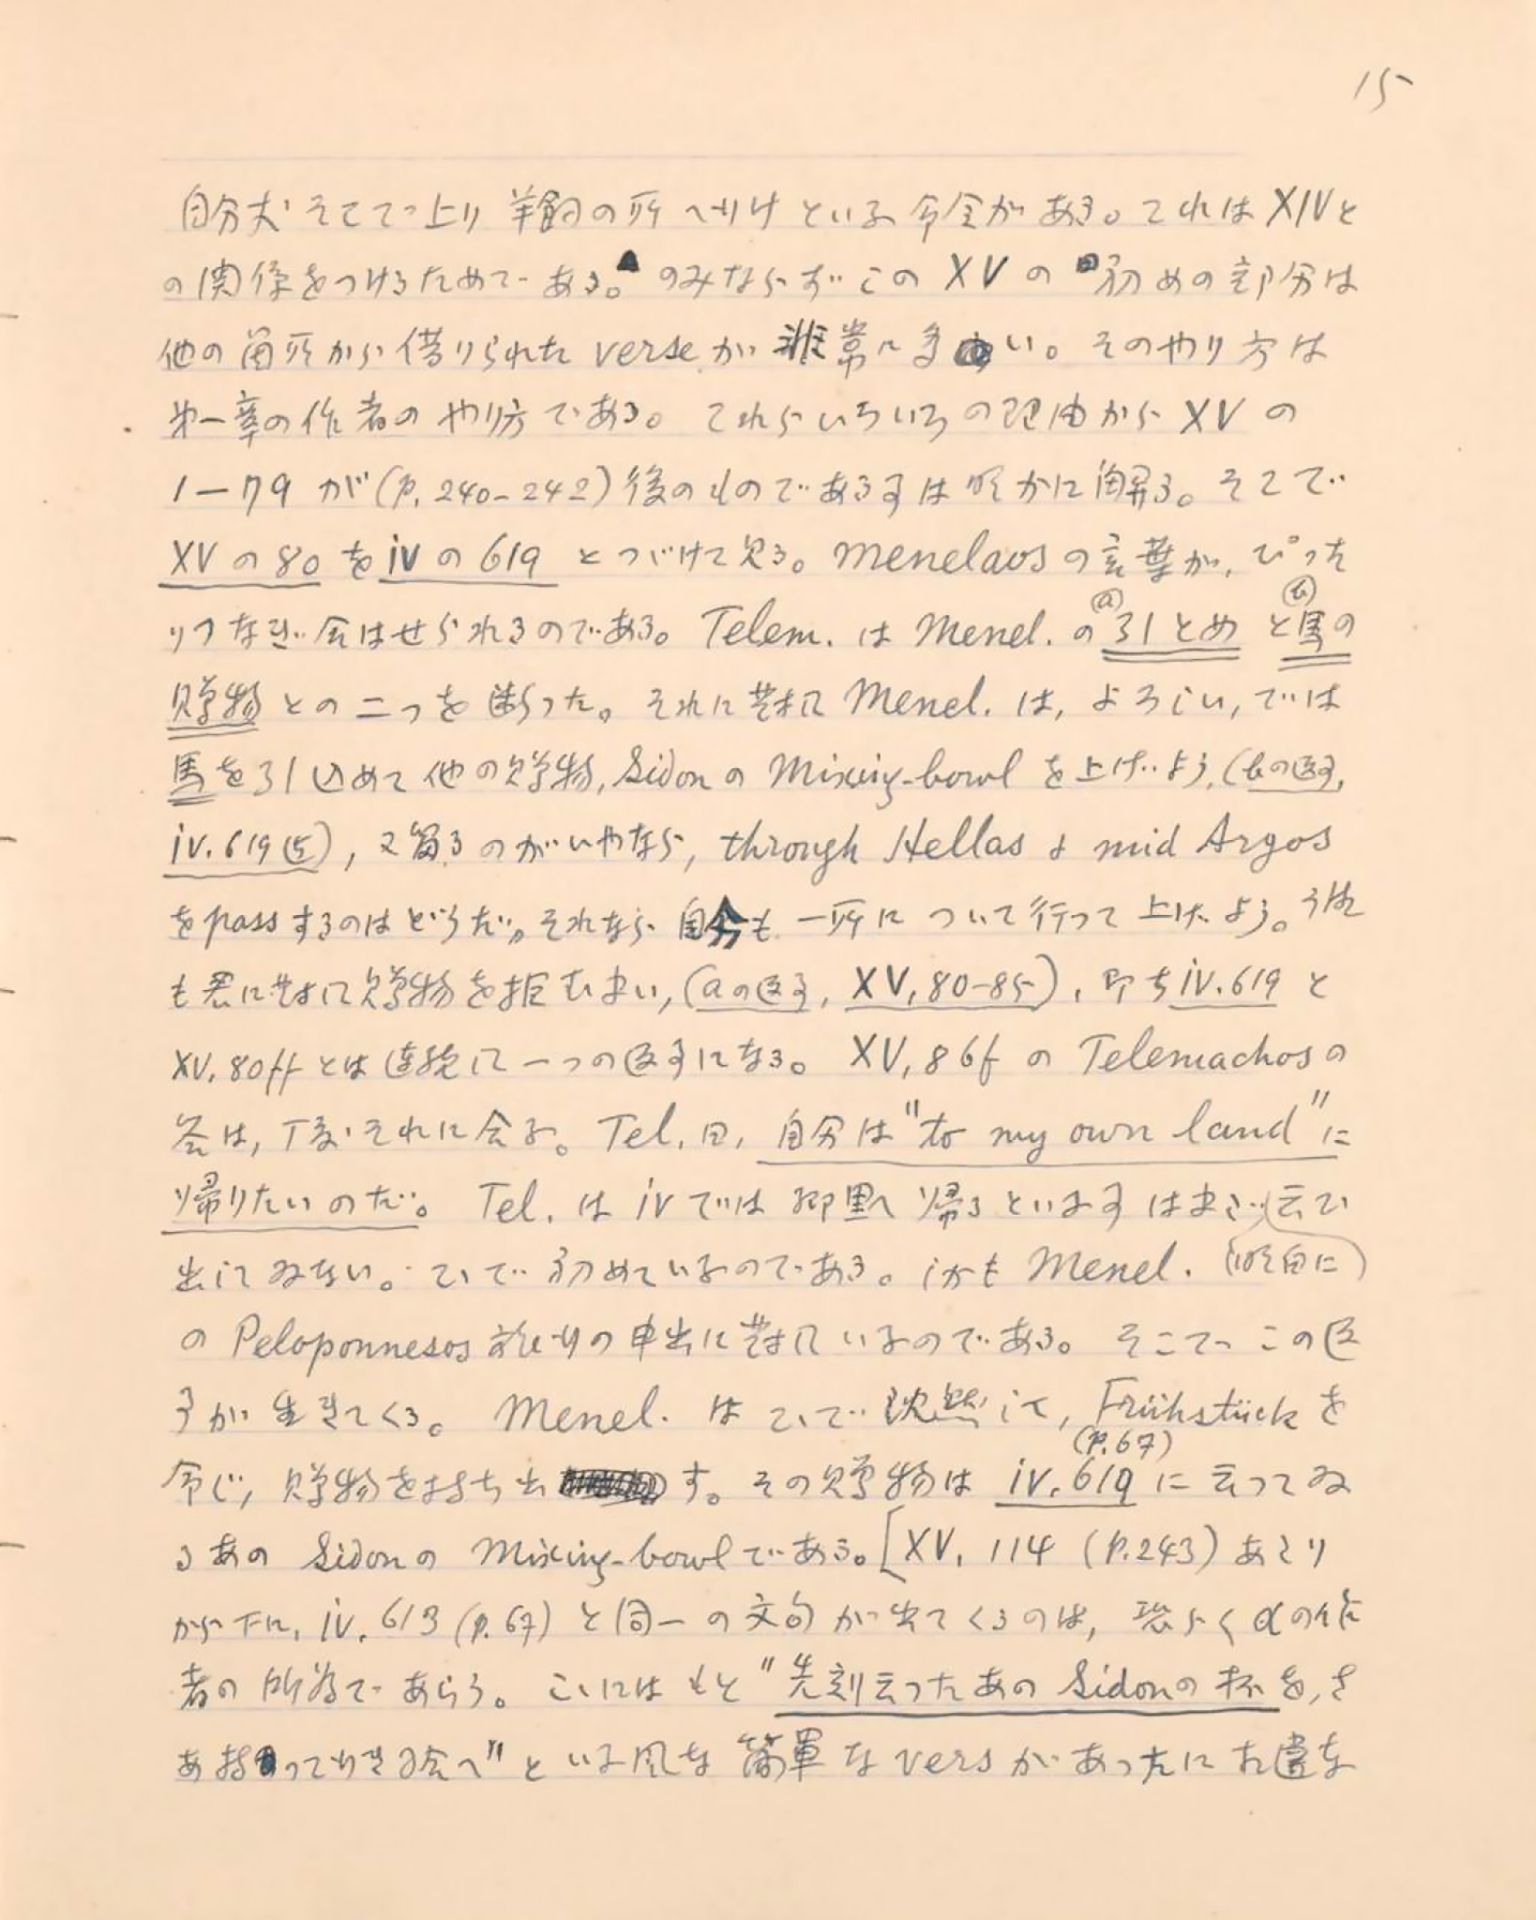 15
自分丈そこで上り羊飼の所へ行けといふ命令がある。これはXIVと
の関係をつけるためである。のみならずこのXVの初めの部分は
他の箇所から借りられたverseが非常に多い。そのやり方は
第一章の作者のやり方である。これらいろいろの理由からXVの
1—79が(p. 240-242)後のものである事は明かに解る。そこで
XVの80をivの619とつゞけて見る。Menelaosの言葉が、ぴった
りつなぎ合はせられるのである。Telem. は Menel. の(a)引とめと(b)馬の
贈物との二つを断った。それに対して Menel. は, よろしい, では
馬を引込めて他の贈物, Sidonの Mixing-bowl を上げよう, (bの返事,
iv. 619 ), 又留るのがいやなら, through Hellas & mid Argos
をpassするのはどうだ。それなら自分も一所について行って上げよう。誰
も君に対して贈物を拒むまい, (aの返事, XV, 80-85), 即ち iv. 619 と
XV, 80ff とは連続して一つの返事になる。XV, 86f の Telemachosの
答は, 丁度それに合ふ。Tel. 曰, 自分は"to my own land"に
帰りたいのだ。Tel. は iv では郷里へ帰るといふ事はまだ(明白に)云ひ
出してゐない。こゝで初めていふのである。しかも Menel.
の Peloponnesos 旅行の申出に対していふのである。そこでこの返
事が生きてくる。Menel. はこゝで沈黙して, Frühstück を
命じ, 贈物を持ち出す。その贈物は iv. 619 (p. 67) に云ってゐ
るあの Sidonの Mixing-bowl である。[XV, 114 (p. 243) あたり
から下に, iv. 613 (p. 67) と同一の文句が出てくるのは, 恐らくαの作
者の所為であらう。こゝにはもと"先刻云ったあの Sidonの杯を, さ
あ持って行き給へ"といふ風な簡単な vers があったに相違な